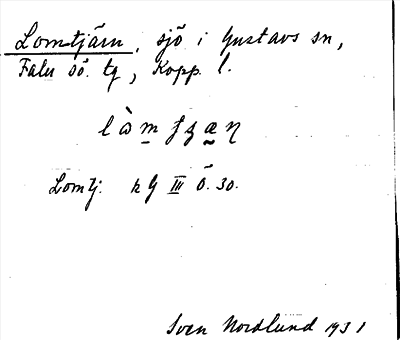 Lomtjärn, sjö i Gustavs sn,
Falu sö. tg, Kopp. l.
Lomtj. k G III Ö. 30.
Sven Nordlund 1931